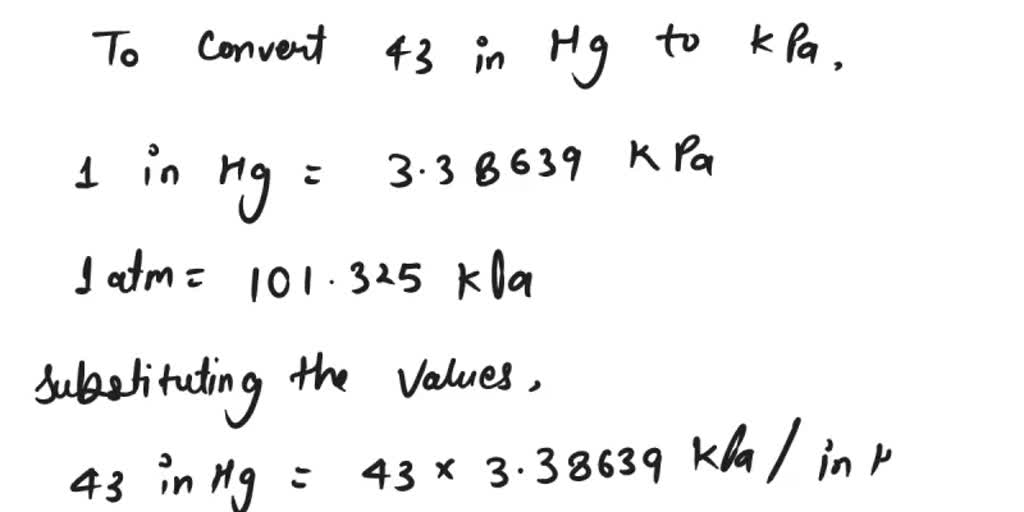 To Convert 43 in Hg to kPa.
1 in Hg = 3.38639 kPa
1 atm = 101.325 kPa
substituting the values,
43 in Hg = 43 × 3.38639 kPa / in